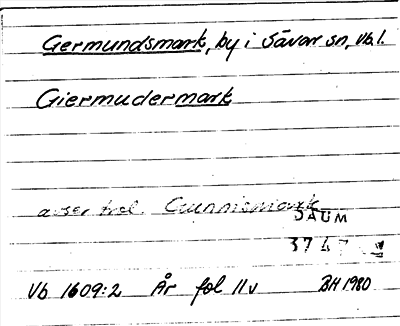 Germundsmark, by i Sävar sn, Vb.l.
Giermudermark
avser trol. Gunnismark
DAUM
3747
Vb 1609:2 År fol 11v BH 1980